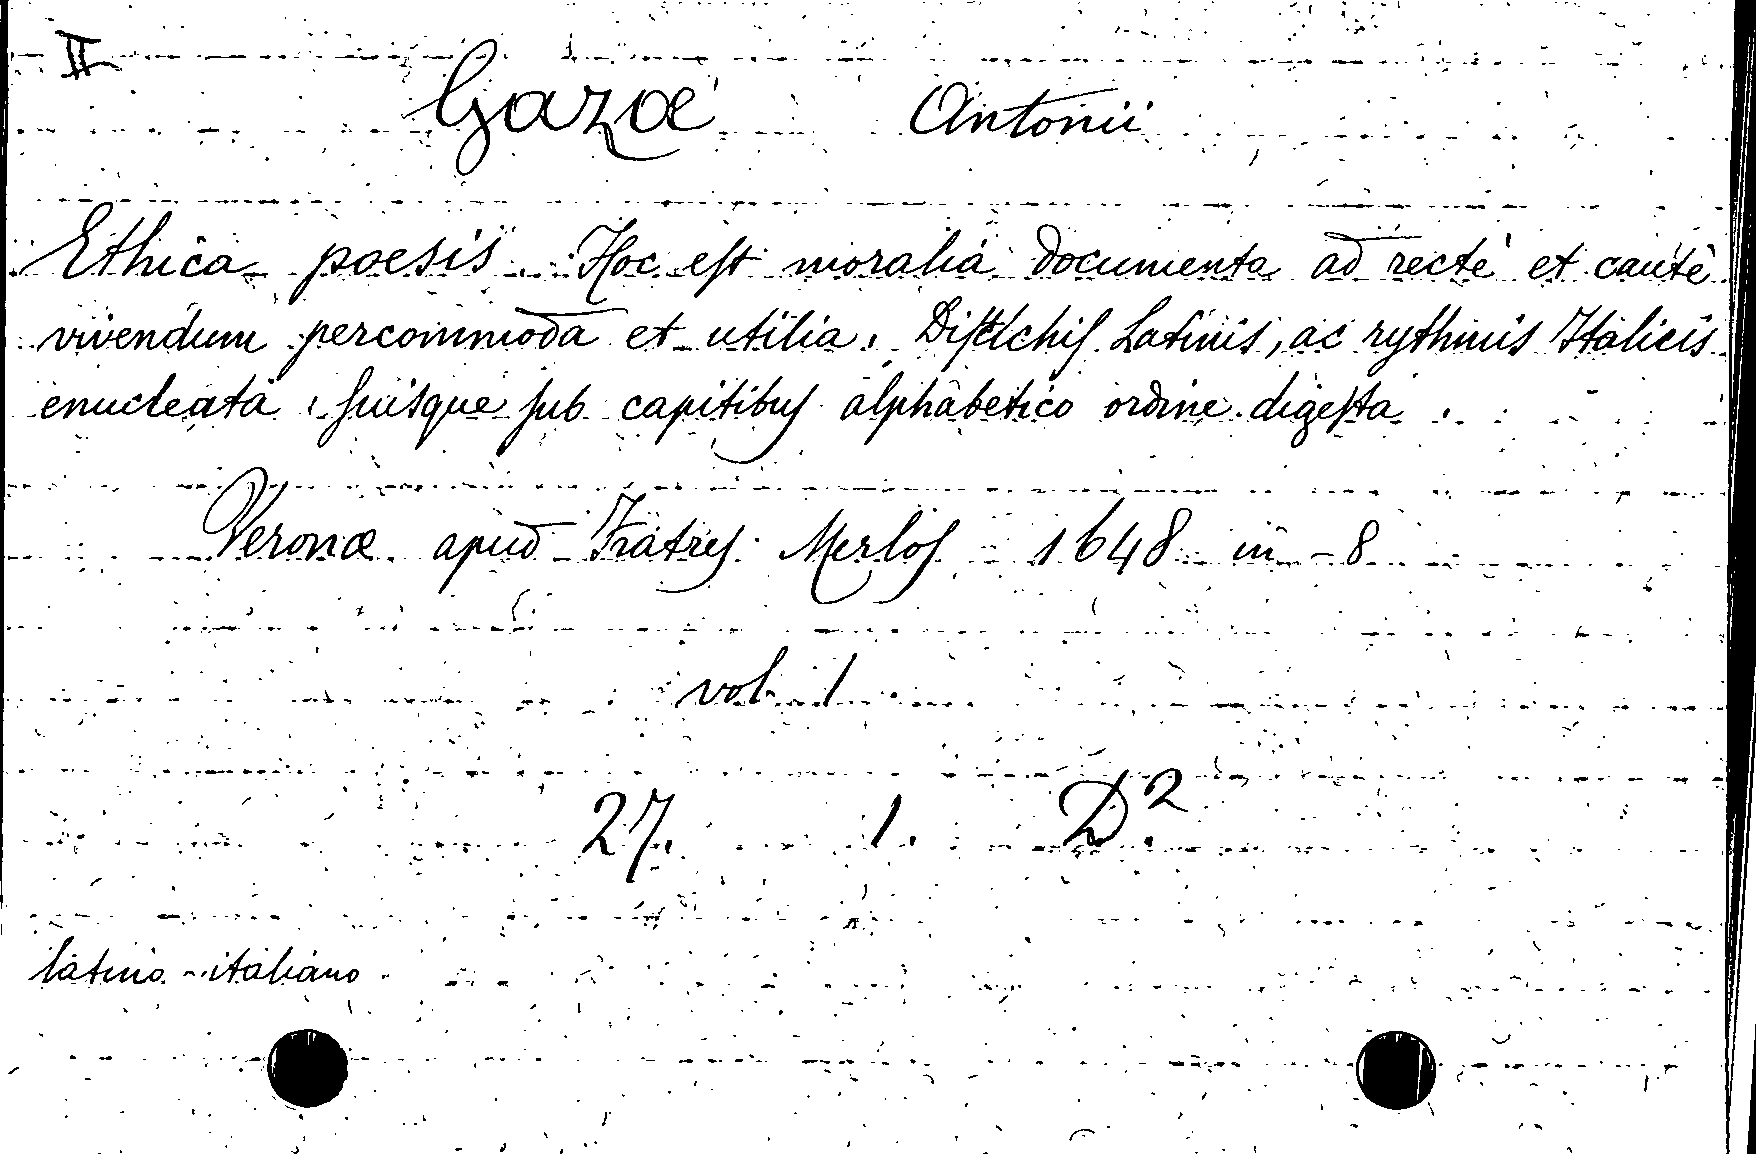 II
Gazæ Antonii
Ethica poesis. Hoc est moralia documenta ad rectè et cautè
vivendum percommoda et utilia. Distichis Latinis, ac rythmis Italicis
enucleata, suisque sub capitibus alphabetico ordine digesta.
Veronæ apud Fratres Merlos 1648 in-8
vol. 1
27. 1. D².
latino-italiano